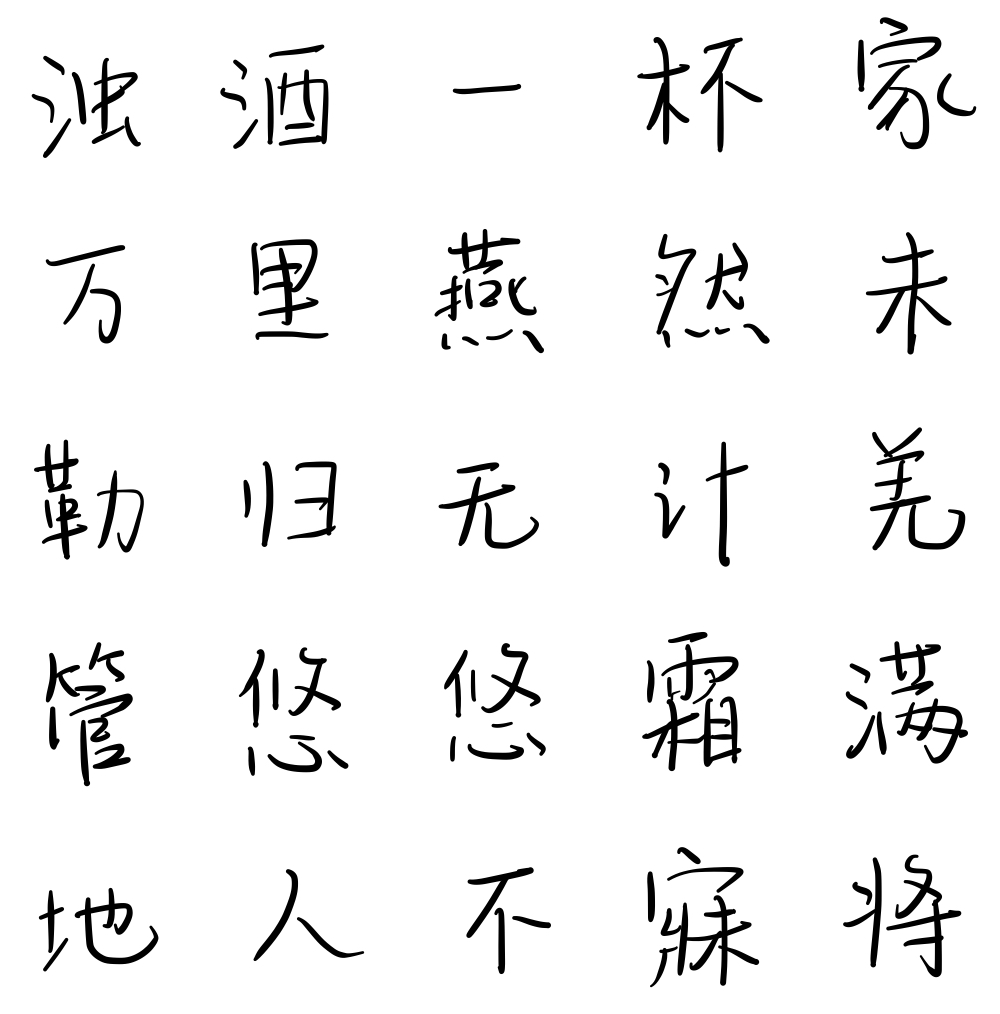 浊酒一杯家
万里燕然未
勒归无计羌
管悠悠霜满
地人不寐将